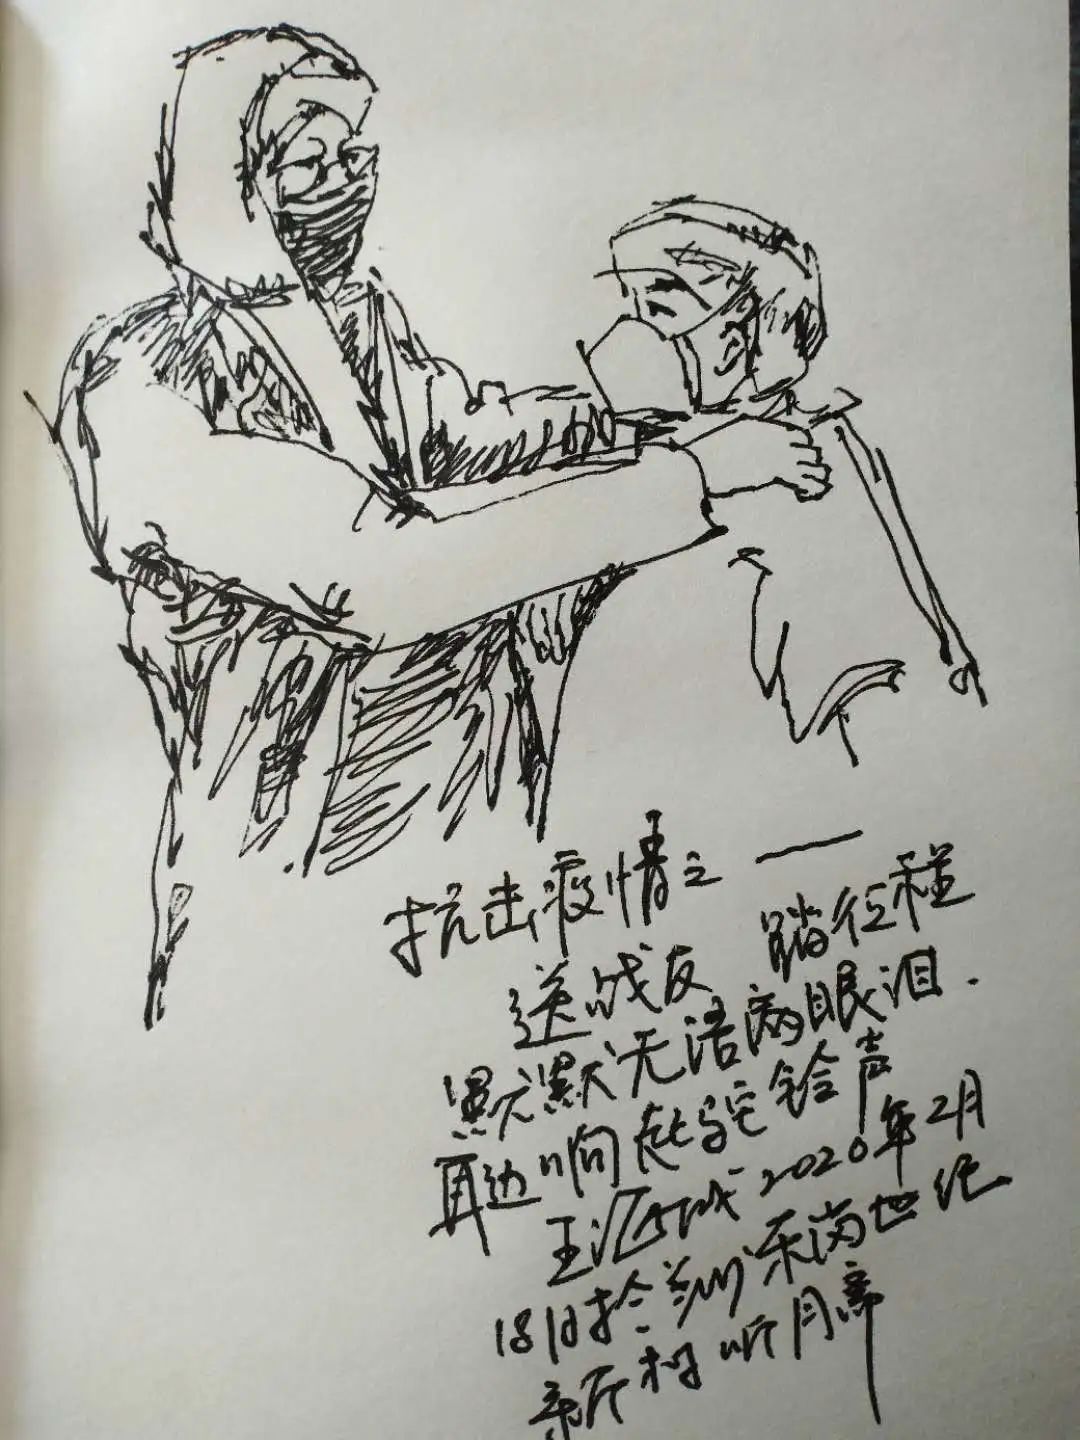 抗击疫情之一
送战友 踏征程
默默无语两眼泪.
耳边响起驼铃声
王 2020年2月
18日于兰州 世纪
新 听月斋